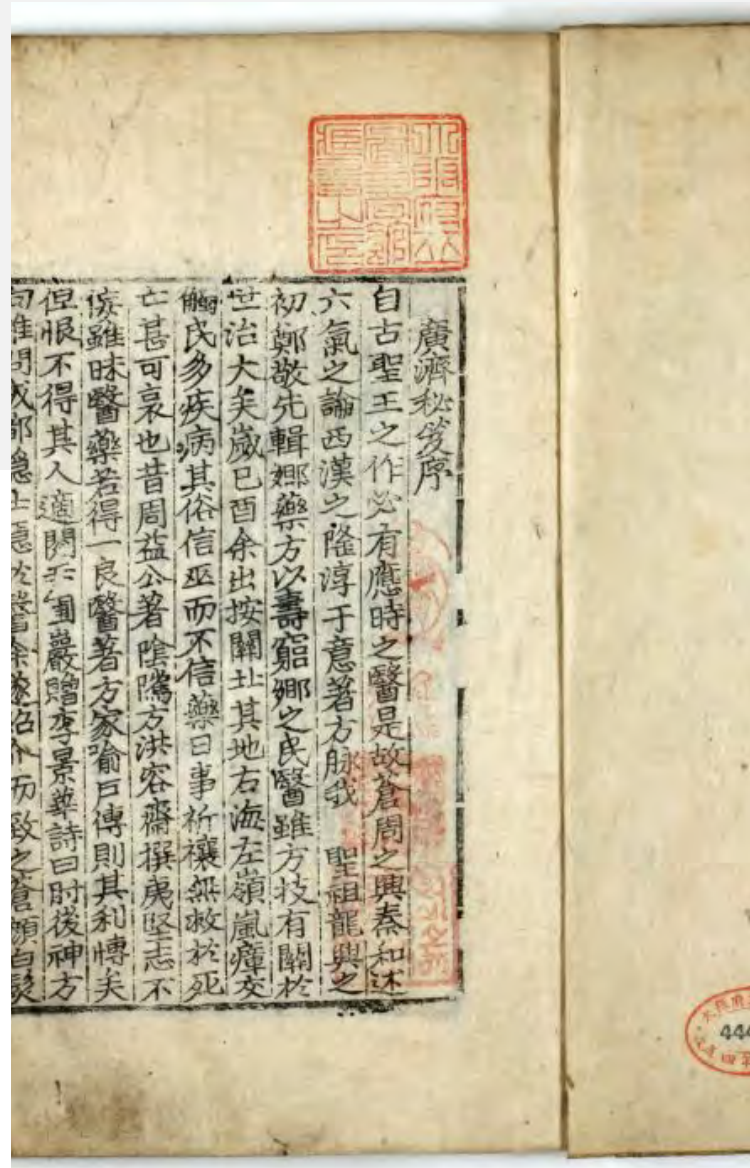 廣濟秘笈序
自古聖王之作必有應時之醫是故蒼周之興秦和述
六氣之論西漢之隆淳于意著方脉我 聖祖龍興之
初鄭敬先輯鄕藥方以壽窮鄕之民醫雖方技有關於
世治大矣歲己酉余出按關北其地右海左嶺嵐瘴交
觸民多疾病其俗信巫而不信藥日事祈禳無救於死
亡甚可哀也昔周益公著陰隲方洪容齋撰夷堅志不
侫雖昧醫藥若得一良醫著方家喻戶傳則其利博矣
但恨不得其人適閱 圃巖贈李景華詩曰肘後神方
問咸 隱士 余遂 而致之蒼顔白髮
444